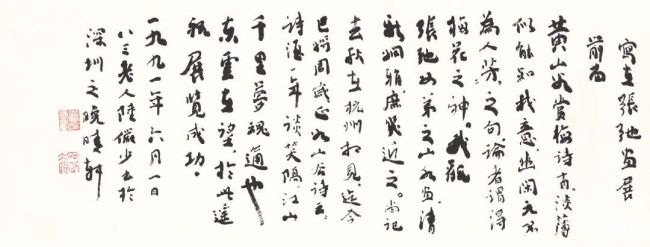 寫在張弛畫展
前面
黄山谷賞梅詩有，淡薄
似能知我意，幽閑元不
為人芳。之句論者謂得
梅花之神。我觀
張弛女弟之山水畫，清
新嫻雅，庶幾近之。尚記
去秋在杭州相見，迄今
已將周歲正如山谷詩云，
詩酒一年談笑隔，江山
千里夢魂通也
雲在望於此遥
祝展覽成功。
一九九一年六月一日
八三老人陸儼少書於
深圳之晚晴軒